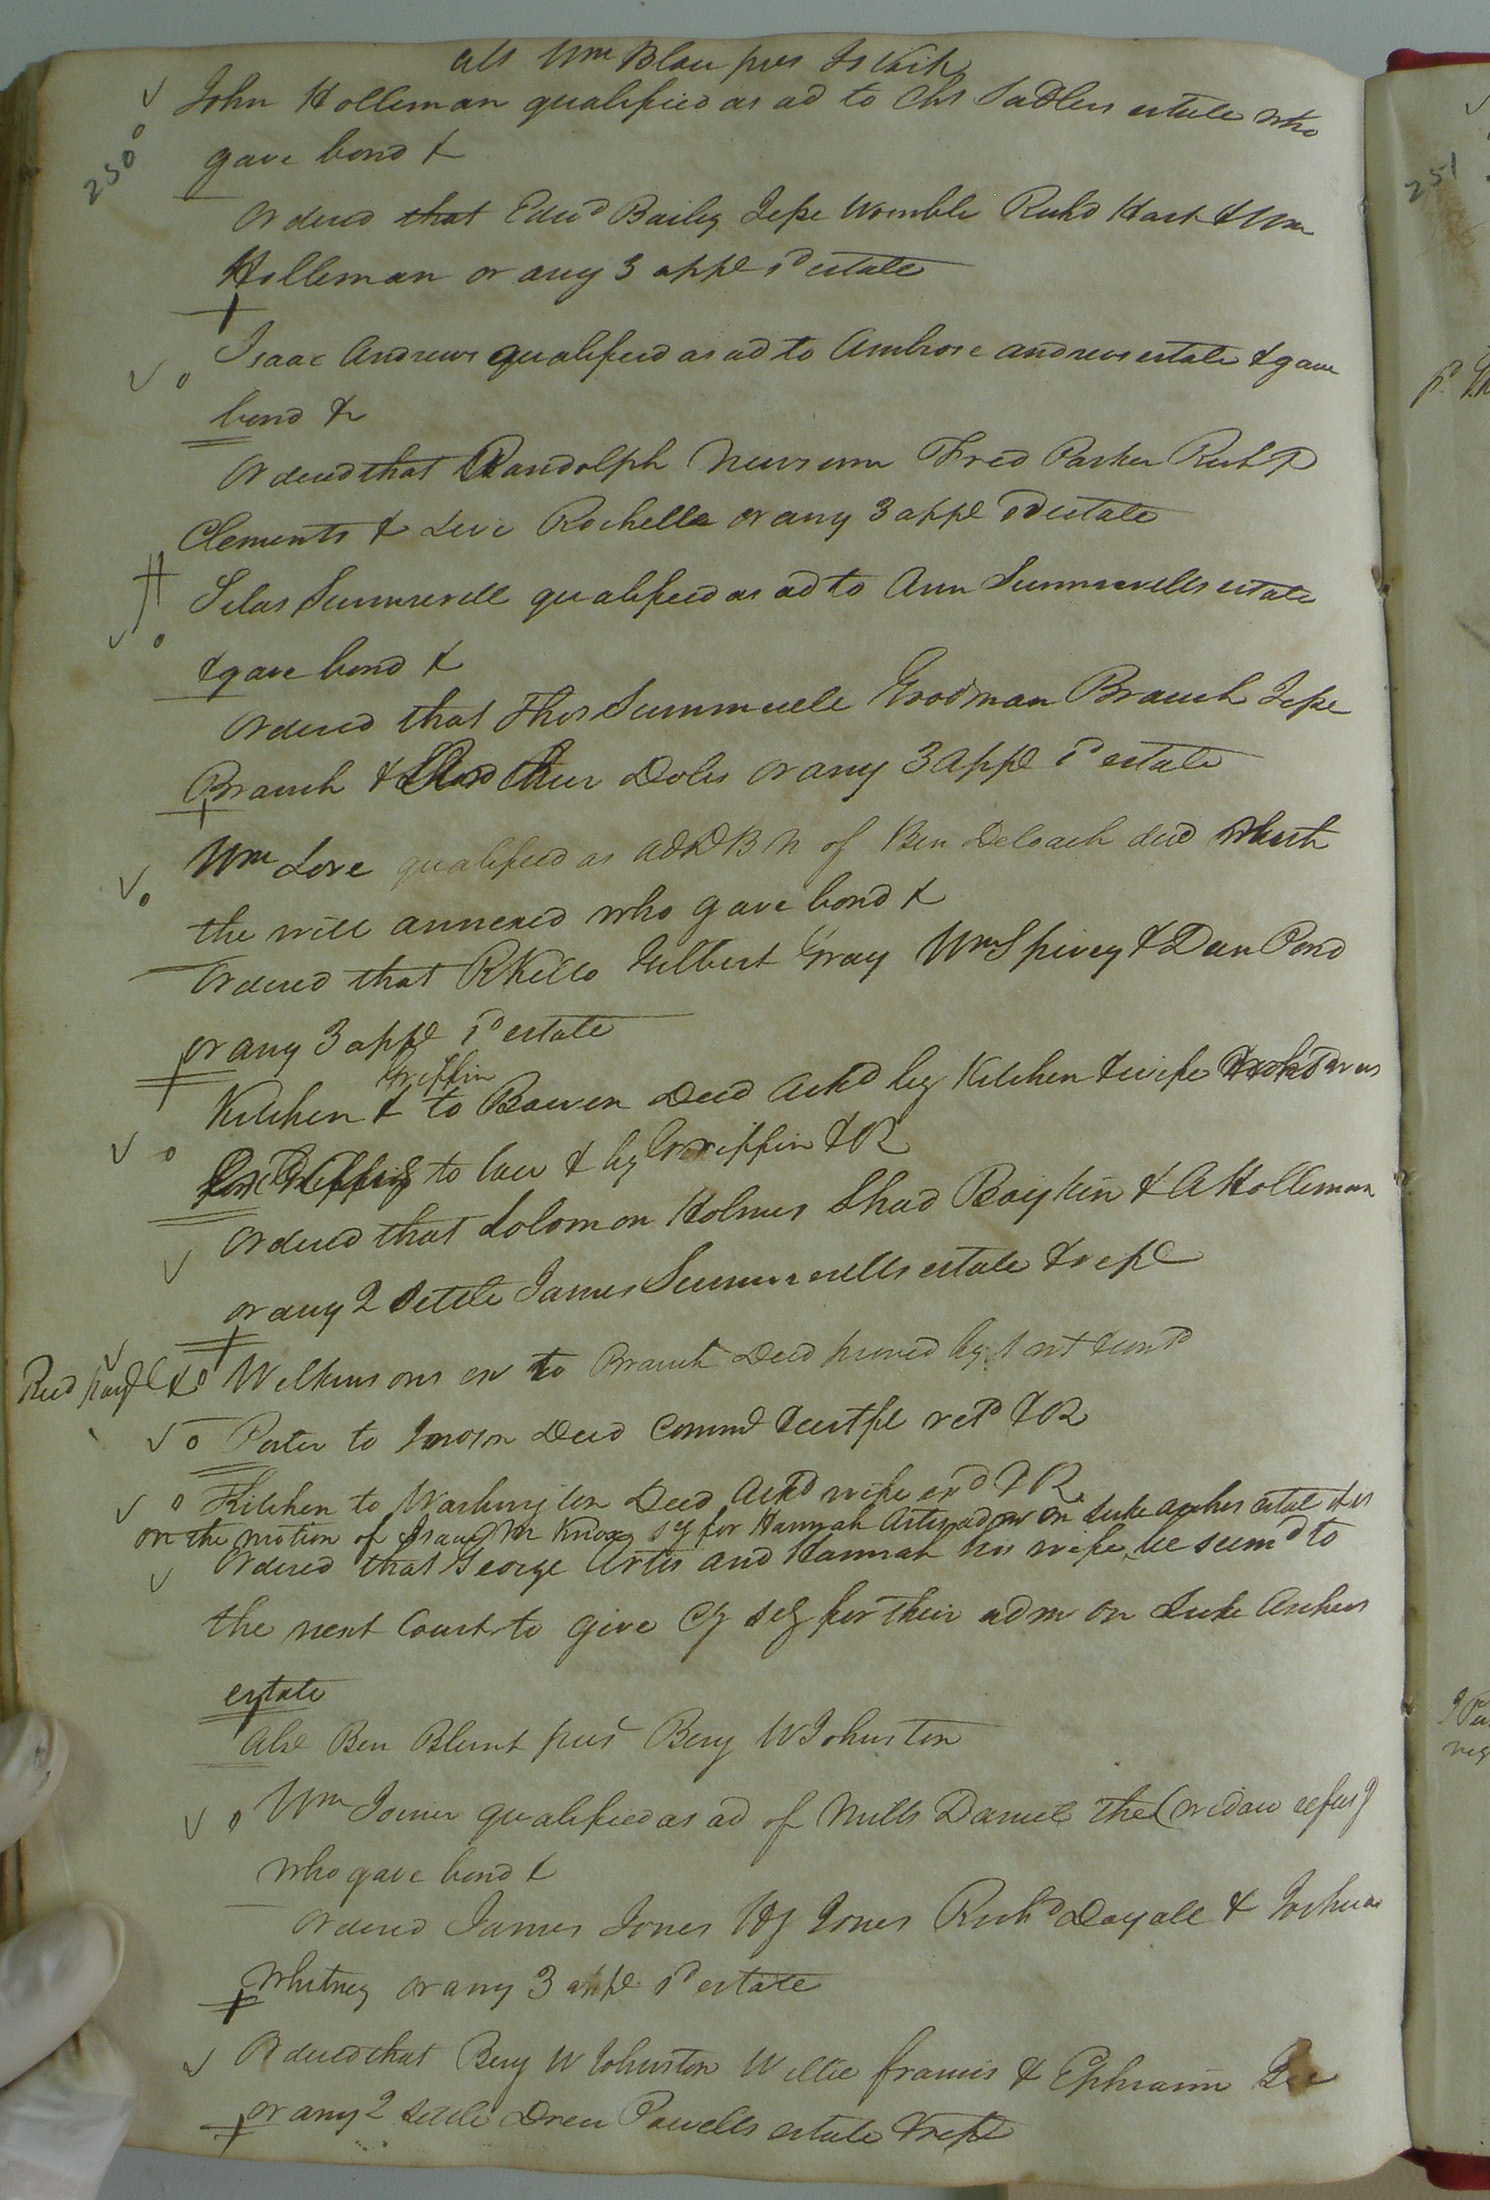 Wm Blau pres
John Holleman qualified as ad to Chs Sadlers estate who
250
gave bond &
Ordered that Edwd Bailey Jesse Womble Richd Hart & Wm
Holleman or any 3 appe sd estate
Isaac Andrews qualified as ad to Ambrose andrews estate & gave
bond &
Ordered that Randolph Newsum Fred Parker Richd
Clements & Levi Rochelle or any 3 appe sd estate
Silas Summerell qualified as ad to Ann Summerells estate
& gave bond &
Ordered that Thos Summerell Goodman Branch Jesse
Branch & Doles or any 3 appe sd estate
Wm Love qualified as ad D B N of Ben Deloach decd
the will annexed who gave bond &
Ordered that R Kello Gilbert Gray Wm Spivey & Dan Pond
or any 3 appe sd estate
Griffin
Kitchen & to Bowen Deed ackd by Kitchen & wife
to law & by Griffin & R
Ordered that Solomon Holmes Shad Boykin & A Holleman
or any 2 settle James Summerells estate & repe
Wilkinsons ex to Branch Deed proved by 1 wt
Porter to Deed Commd retd & R
Kitchen to Washington Deed Ackd wife exd & R
on the motion of Isaac M Knox scy for Hannah Artis adm on Luke archers estate
Ordered that George Artis and Hannah his wife be summd to
the next Court to give scy for their adm on Luke Archers
estate
Abs Ben Blunt pres Benj W Johnston
Wm Joiner qualified as ad of Mills Daniel the (widow refusg
who gave bond &
Ordered James Jones Jones Richd Dayall & Joshua
Whitney or any 3 appe sd estate
Ordered that Benj W Johnston Willie francis & Ephraim Lee
or any 2 settle Drew Powells estate & repe
251